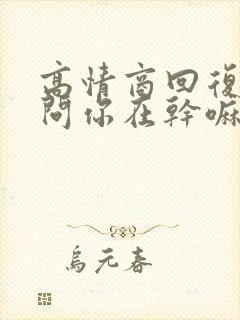 高情商回復
問你在幹嘛
烏元春